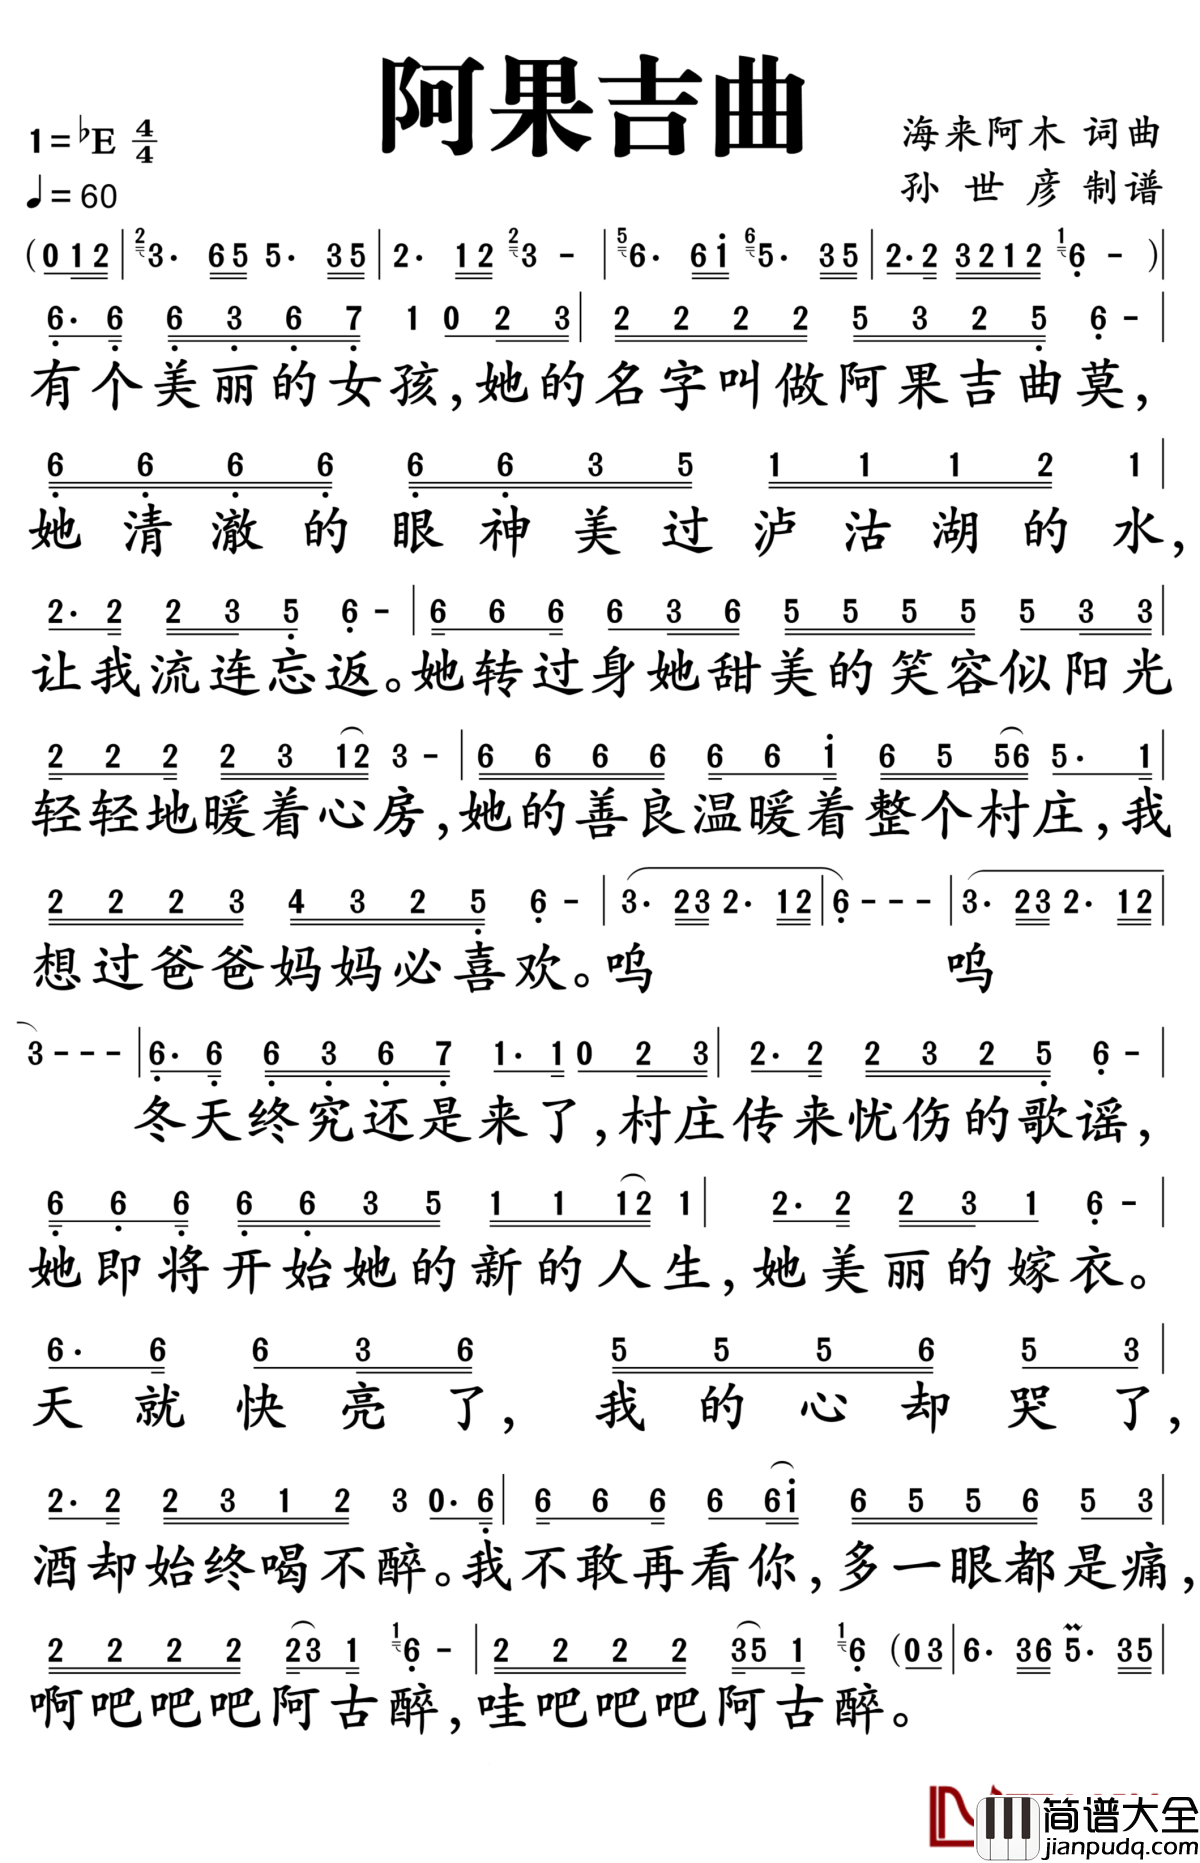 阿果吉曲
1=♭E 4/4
海来阿木 词曲
♩=60
孙世彦 制谱
(012|²3· 65 5· 35|2· 12 ²3 -|⁵6· 6i ⁶5· 35|2·2 3212 ¹6· -)|
6· 6 6 3 6 7 1 0 2 3|2 2 2 2 5 3 2 5 6 -|
有个美丽的女孩,她的名字叫做阿果吉曲莫,
6 6 6 6 6 6 3 5 1 1 1 2 1|
她清澈的眼神美过泸沽湖的水,
2· 2 2 3 5 6 -|6 6 6 6 3 6 5 5 5 5 5 3 3|
让我流连忘返。她转过身她甜美的笑容似阳光
2 2 2 2 3 12 3 -|6 6 6 6 6 6 i 6 5 56 5· 1|
轻轻地暖着心房,她的善良温暖着整个村庄,我
2 2 2 3 4 3 2 5 6 -|3· 23 2· 12|6 - - -|3· 23 2· 12|
想过爸爸妈妈必喜欢。呜 呜
3 - - -|6· 6 6 3 6 7 1· 1 0 2 3|2· 2 2 3 2 5 6 -|
冬天终究还是来了,村庄传来忧伤的歌谣,
6 6 6 6 6 3 5 1 1 12 1|2· 2 2 3 1 6 -|
她即将开始她的新的人生,她美丽的嫁衣。
6· 6 6 3 6 5 5 5 6 5 3|
天就快亮了,我的心却哭了,
2· 2 2 3 1 2 3 0· 6|6 6 6 6 6i 6 5 5 6 5 3|
酒却始终喝不醉。我不敢再看你,多一眼都是痛,
2 2 2 2 23 1 ¹6 -|2 2 2 2 35 1 ¹6 (03|6· 36 5· 35|
啊吧吧吧阿古醉,哇吧吧吧阿古醉。
简谱大全
jianpudq.com